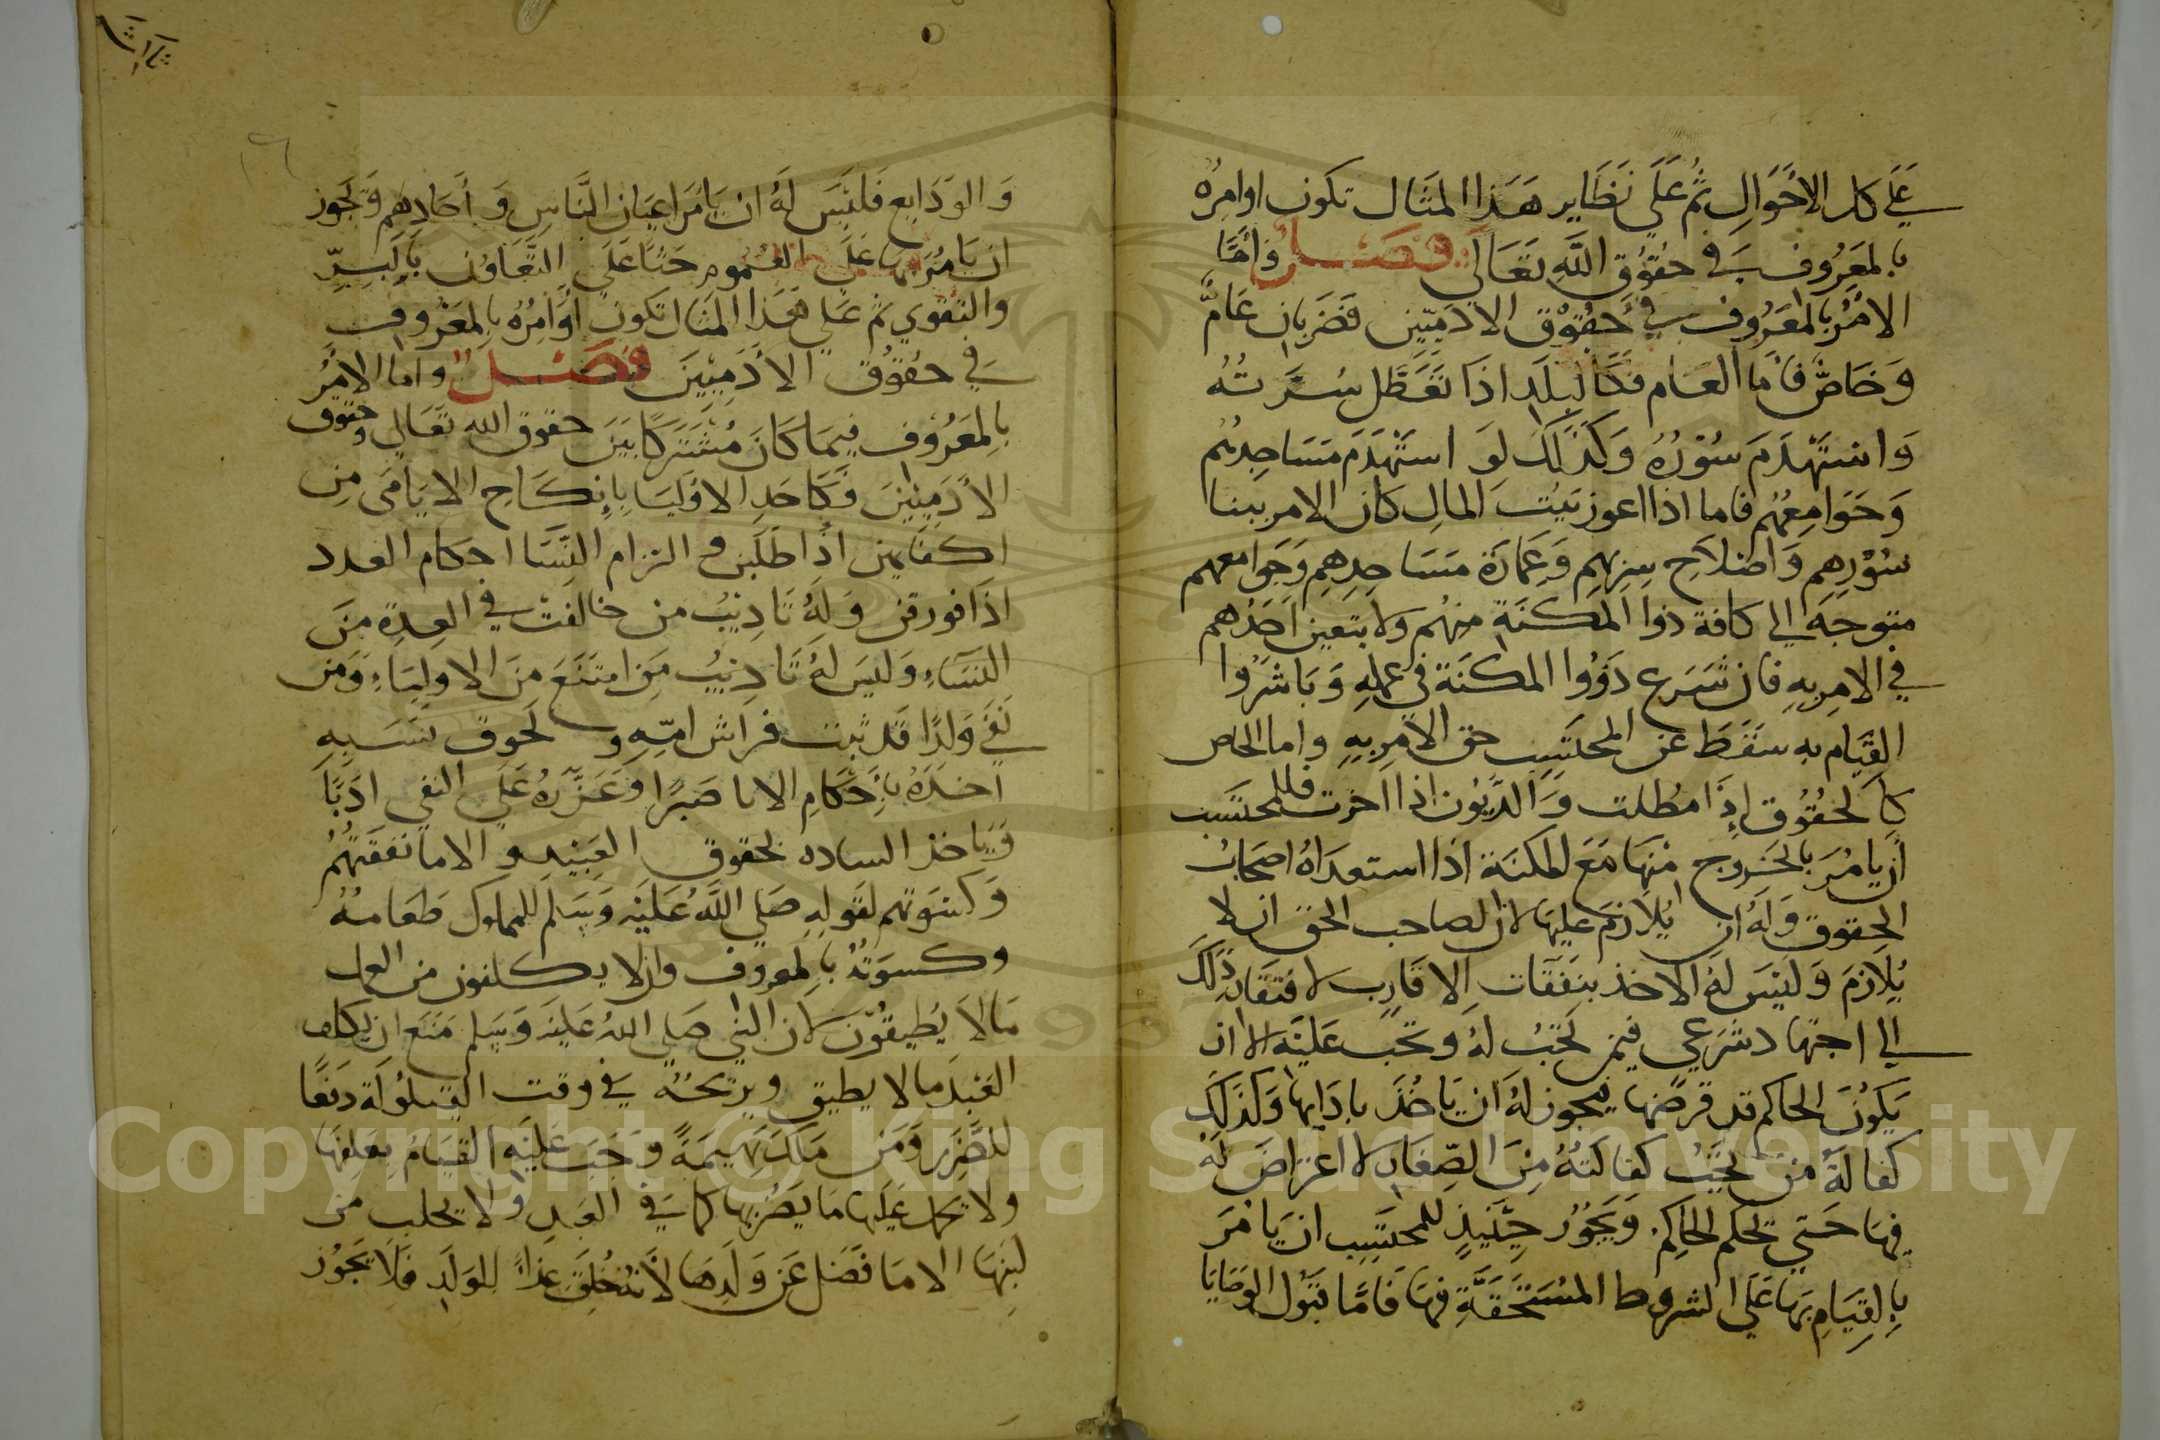 علي كل الاحَوَالِ ثمُ عَلَي نَظَاير هَذا المثَال تكون اوامِرُه
بالمعَرُوف في حقوُقِ اللَّهِ تعَالي فصَل وَامَّا
الامْرُ بالمعَرُوف في حُقوُق الادَميّين فضَربانِ عَامٌّ
وَخاصٌّ فامّا العَام فكَالبلَدِ اذَا تعَطَّل شربُهُ
وَاستَهْدَمَ سُورُهُ وَكذَلكَ لوَ استَهْدَمَ مَسَاجِدهُم
وَجَوَامِعُهُم فاما اذا اعوز بَيْت المالِ كان الامر ببنا
سُوْرِهِم وَاصْلاَحِ شربِهِم وَعِمَارَة مسَاجِدِهِم وَجَوامعهم
متوجه الي كافة ذوا المكنَة منهُم ولا يتعين احَدُهم
في الامِر بِهِ فان شَرَع ذوُوا المكنَة في عملِهِ وَبَاشرُوا
القيَام بهِ سَقَطَ عَن المحتَسِب حق الامر بِهِ واما الخاص
كالحقُوُق اِذَا مُطلت وَالدُّيوُن اذا اخرت فللمحتَسب
اَن يامُرَ بالخُروج منهَا مَعَ المكنة اذا استعدَاهُ اصحَابُ
الحقوق وَلهُ ان يُلاَزمَ عليهَا لان لصاحب الحق ان لا
يُلاَزمَ وَليْسَ لهُ الاخذ بنفَقَات الاقَارب لافتقَار ذلكَ
الي اجتهاد شرَعي فيمن تجبُ لهُ وتجب عَليْه الا ان
يَكونَ الحاكم قد فرضهَا فيجوز لَهُ ان يَاخُذَ بادَايهَا وَكذَلكَ
كفالة من تجبُ كفالتُهُ مِنَ الصّغَار لا اعتراضَ لَهُ
فيهَا حَتّي يحكم الحاكم وَيجَوُز حِيْنَئِذٍ للمحتَسِب ان يَامُرَ
بالقيَام بهَا عَلَي الشروط المسْتَحَقَّةِ فيهَا فَامَّا قبَوُل الوَصَايَا
١٦
وَالوَدَايع فَليْسَ لَهُ ان يَامُرَ اعيَان النَّاسِ وَاحَادِهِم وَيَجوز
ان يَامُرَ بهَا عَلي العُموم حَثًا عَلَي التَّعَاوُن بالبِرّ
والتقوي ثم عَلي هَذا المثَال تكون اَوَامِرُهُ بالمعْرُوفِ
في حقوُق الادَميّينَ فصَل وامّا الامْرُ
بالمعَرُوف فيمَا كانَ مُشتَركًا بَيَن حقوق الله تعَالي وحقوق
الادَميّينَ فكَاخذِ الاوليَا باِنكَاحِ الايَامَى مِن
اكفايهن اذَا طَلَبن والزام النّسَا احكام العدد
اذَا فورقن وَلَهُ تاديْبُ من خالفَت في العِدةِ مِنَ
النسَاءِ وَليسَ لهُ تَاديْبُ مَنِ امتنَعَ منَ الاوليَاءِ وَمَن
نَفي وَلدًا قد ثبت فراش امّهِ ولحوق نَسَبِهِ
اخَذَهُ باَحكامِ الابا جَبرًا وَعَزَّرَهُ عَلَي النفي ادَبًا
وَيَاخذ الساده بحقوق العَبيْدِ والاما نفقَتهُم
وَكسْوَتهم لقَولِهِ صَلي اللَّهُ عَلَيْه وَسَلم للمملوك طعَامهُ
وكسوَتُهُ بالمعروف وان لا يكلفون من العمل
مَا لاَ يُطيقوُن لان النبي صَلي اللهُ عَليهْ وَسَلم مَنَع ان يكلف
العَبْدَ مَا لا يطيق ويريحَهُ في وقت القيلوُلة دفعًا
للضَّرر وَمَن مَلكَ بَهيمَةً وَجَبَ عَليَهِ القيَامُ بعَلفهَا
ولا يحمل عَليهَا مَا يَضُر بهَا كما في العَبد ولا يحلب من
لبنهَا الامَا فَضَل عَن وَلَدِهَا لانهُ خُلِقَ غذاءً للوَلَدِ فَلاَ يَجُوز